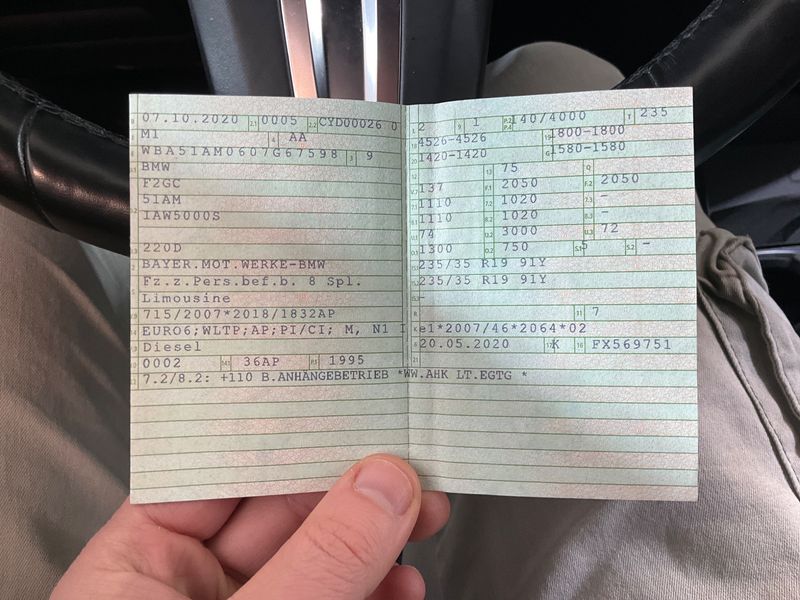 B 07.10.2020 2.1 0005 2.2 CYD00026 0
M1 4 AA
WBA51AM0607G67598 3 9
BMW
F2GC
51AM
IAW5000S
220D
BAYER.MOT.WERKE-BMW
Fz.z.Pers.bef.b. 8 Spl.
Limousine
715/2007*2018/1832AP
EURO6;WLTP;AP;PI/CI; M, N1 I
Diesel
0002 14.1 36AP P.1 1995
7.2/8.2: +110 B.ANHÄNGEBETRIEB *WW.AHK LT.EGTG *
L 2 9 1 P.2 P.4 140/4000 T 235
18 4526-4526 19 1800-1800
20 1420-1420 G 1580-1580
12 13 75 Q
V.7 137 F.1 2050 F.2 2050
7.1 1110 7.2 1020 7.3 -
8.1 1110 8.2 1020 8.3 -
U.1 74 U.2 3000 U.3 72
O.1 1300 O.2 750 S.1 5 S.2 -
235/35 R19 91Y
235/35 R19 91Y
-
R 11 7
K e1*2007/46*2064*02
6 20.05.2020 17 K 16 FX569751
21